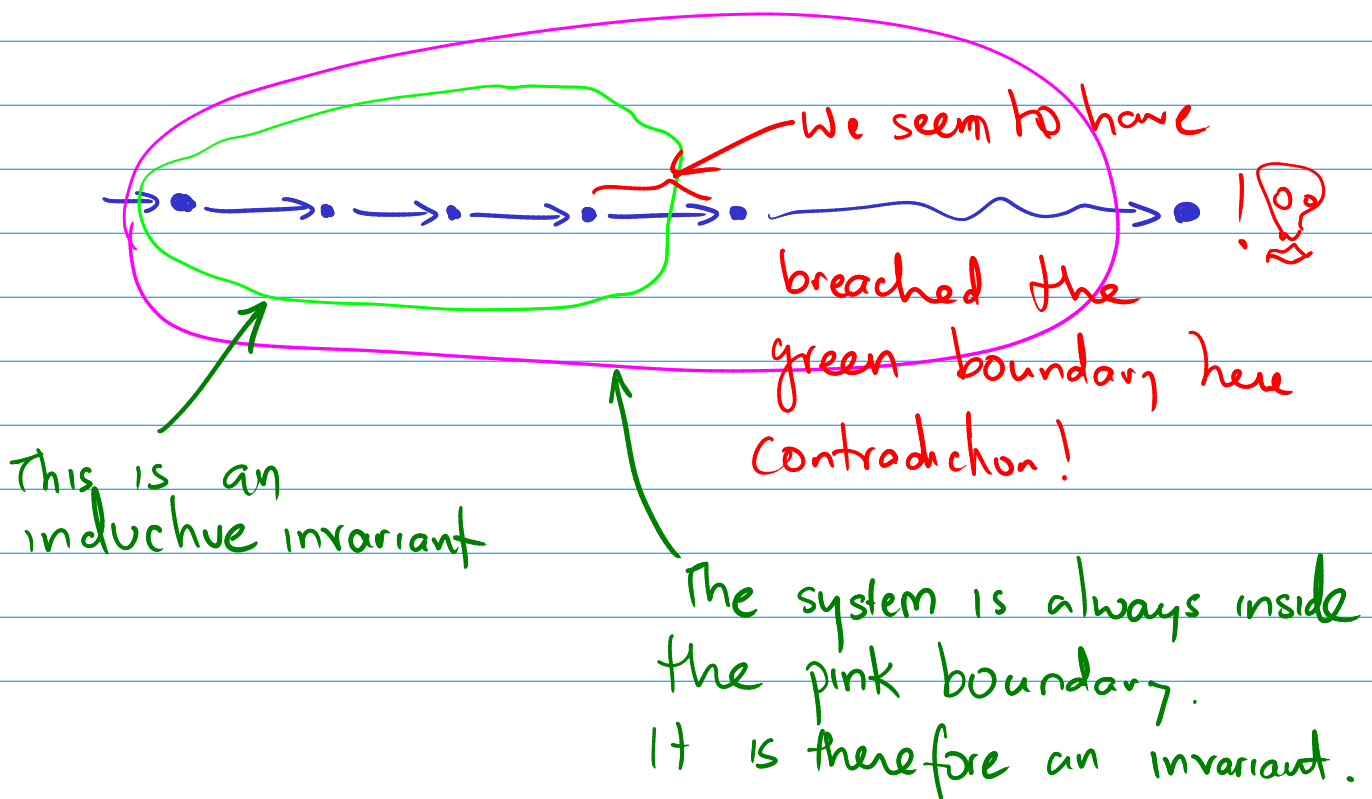 We seem to have
breached the
green boundary here
Contradiction!
This is an
inductive invariant
The system is always inside
the pink boundary.
It is therefore an invariant.